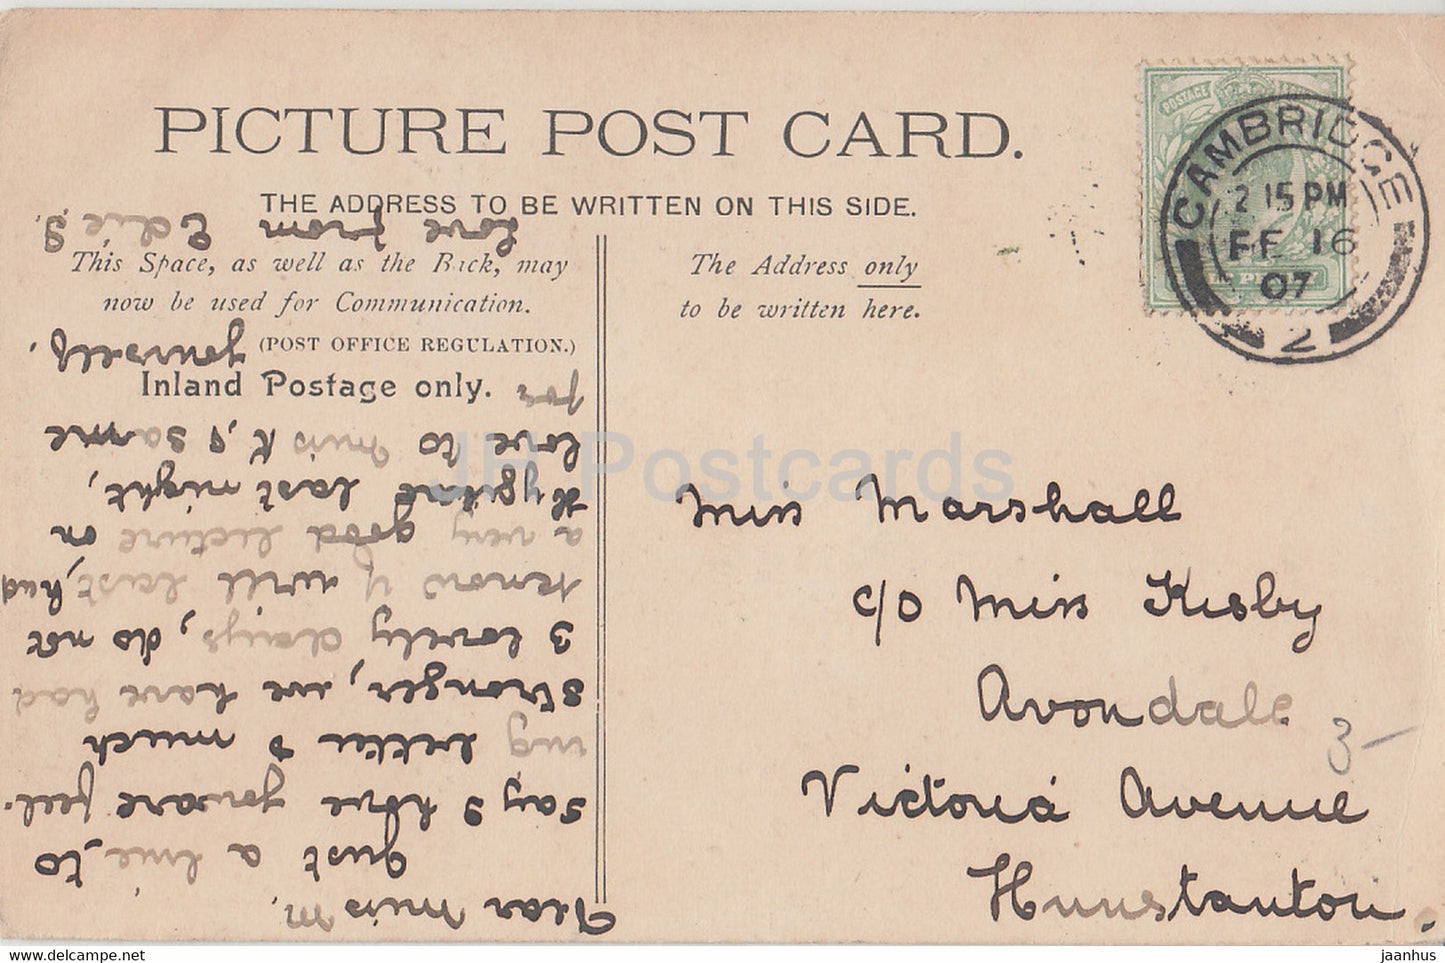 PICTURE POST CARD.
THE ADDRESS TO BE WRITTEN ON THIS SIDE.
This Space, as well as the Back, may
now be used for Communication.
(POST OFFICE REGULATION.)
Inland Postage only.
The Address only
to be written here.
POSTAGE
CAMBRIDGE
2 15 PM
FE 16
07
2
Miss Marshall
c/o Miss Kisby
Avondale
Victoria Avenue
Hunstanton.
3-
Dear Miss M.
Just a line, to
say I hope you are feel-
ing better & much
stronger, we have had
3 lovely days, do not
know if will last, had
a very good lecture on
Hygiene last night,
love to Miss K, & same
for
yourself,
Love from Edie S.
JH Postcards
hipstamp.com